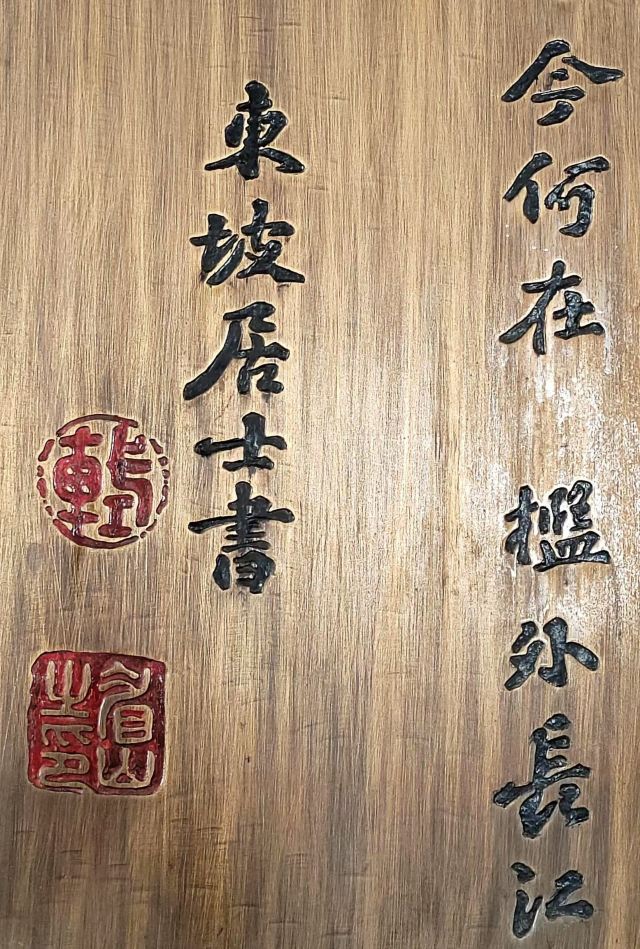 今何在 檻外長江
東坡居士書
軾
眉山